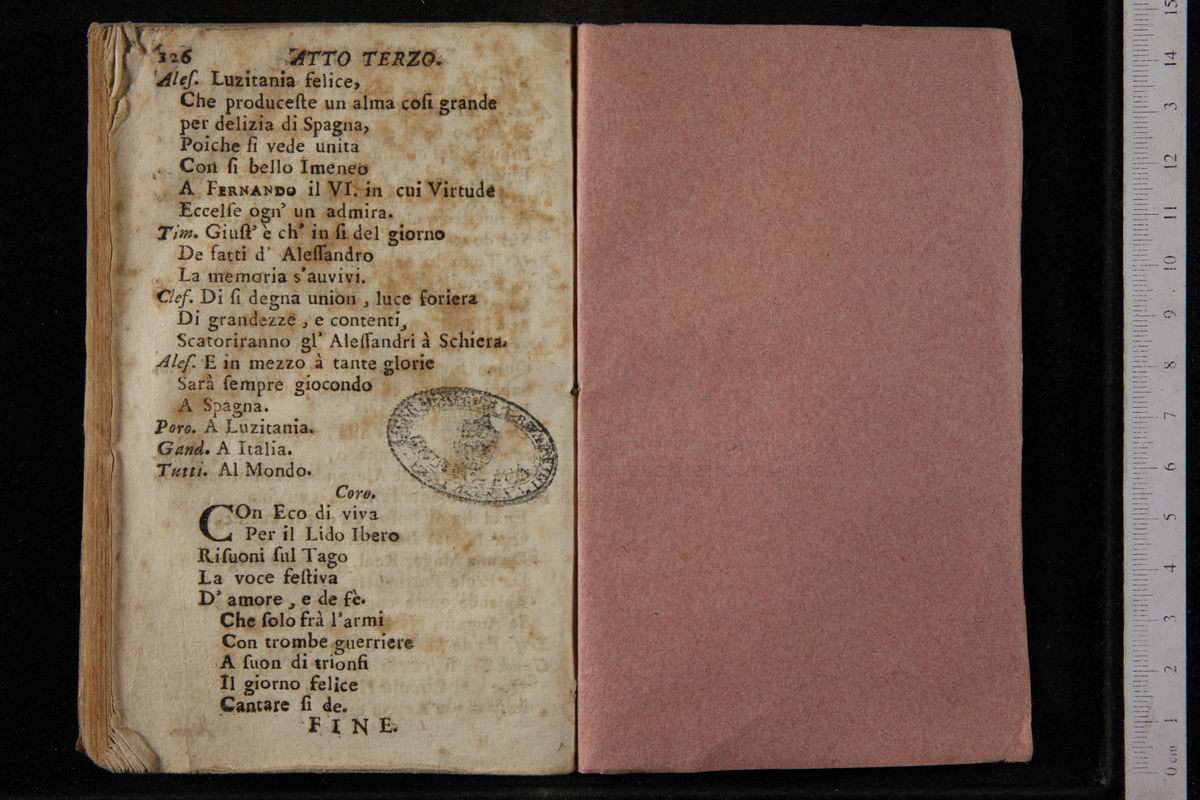 126 ATTO TERZO.
Aleſ. Luzitania felice,
Che produceſte un alma coſi grande
per delizia di Spagna,
Poiche ſi vede unita
Con ſi bello Imeneo
A FERNANDO il VI. in cui Virtude
Eccelſe ogn' un admira.
Tim. Giuſt' è ch' in ſi del giorno
De fatti d' Aleſſandro
La memoria s'auvivi.
Cleſ. Di ſi degna union , luce foriera
Di grandezze , e contenti,
Scatoriranno gl' Aleſſandri à Schiera.
Aleſ. E in mezzo à tante glorie
Sarà ſempre giocondo
A Spagna.
Poro. A Luzitania.
Gand. A Italia.
Tutti. Al Mondo.
Coro.
COn Eco di viva
Per il Lido Ibero
Riſuoni ſul Tago
La voce feſtiva
D' amore , e de fè.
Che ſolo frà l'armi
Con trombe guerriere
A ſuon di trionfi
Il giorno felice
Cantare ſi de.
FINE.
15
14
13
12
11
10
9
8
7
6
5
4
3
2
1
0 cm